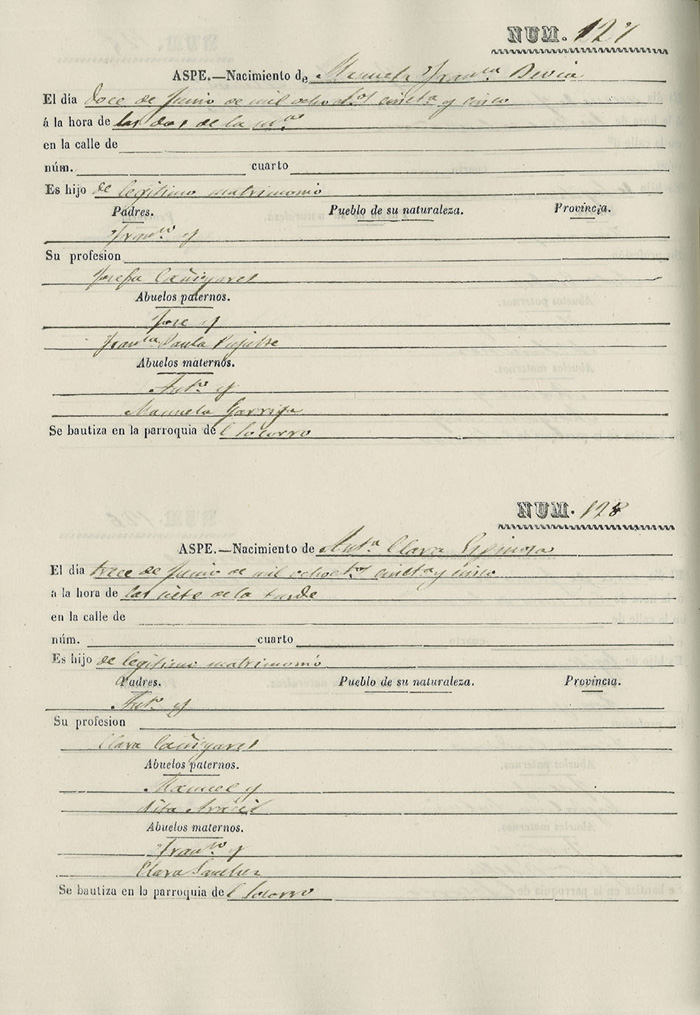 NUM. 127
ASPE.—Nacimiento de Manuela Franca
El día doce de Junio de mil ochotos cincta y cinco
á la hora de las dos de la mna
en la calle de
núm. cuarto
Es hijo de legitimo matrimonio
Padres. Pueblo de su naturaleza. Provincia.
Franco y
Su profesion
Josefa Cañizares
Abuelos paternos.
Jose y
Franca Paula
Abuelos maternos.
Anto y
Manuela
Se bautiza en la parroquia del Socorro
NUM. 128
ASPE.—Nacimiento de Anta Clara Espinosa
El día trece de Junio de mil ochotos cincta y cinco
á la hora de las siete de la tarde
en la calle de
núm. cuarto
Es hijo de legitimo matrimonio
Padres. Pueblo de su naturaleza. Provincia.
Anto y
Su profesion
Clara Cañizares
Abuelos paternos.
Manuel y
Rita
Abuelos maternos.
Franco y
Clara Sanchez
Se bautiza en la parroquia del Socorro